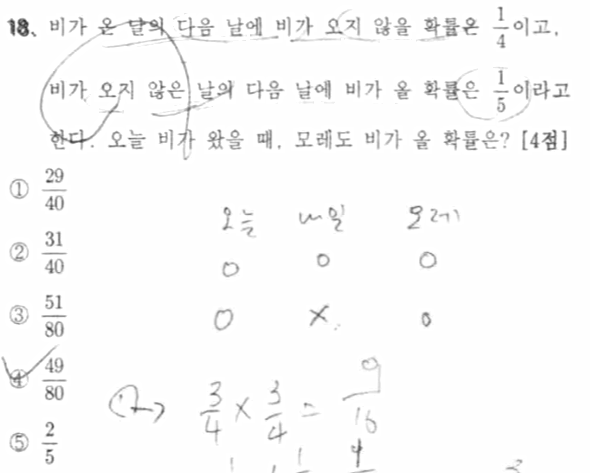 18. 비가 온 날의 다음 날에 비가 오지 않을 확률은 1/4이고,
비가 오지 않은 날의 다음 날에 비가 올 확률은 1/5이라고
한다. 오늘 비가 왔을 때, 모레도 비가 올 확률은? [4점]
① 29/40
② 31/40
③ 51/80
④ 49/80
⑤ 2/5
오늘 내일 모레
O O O
O X O
3/4 × 3/4 = 9/16